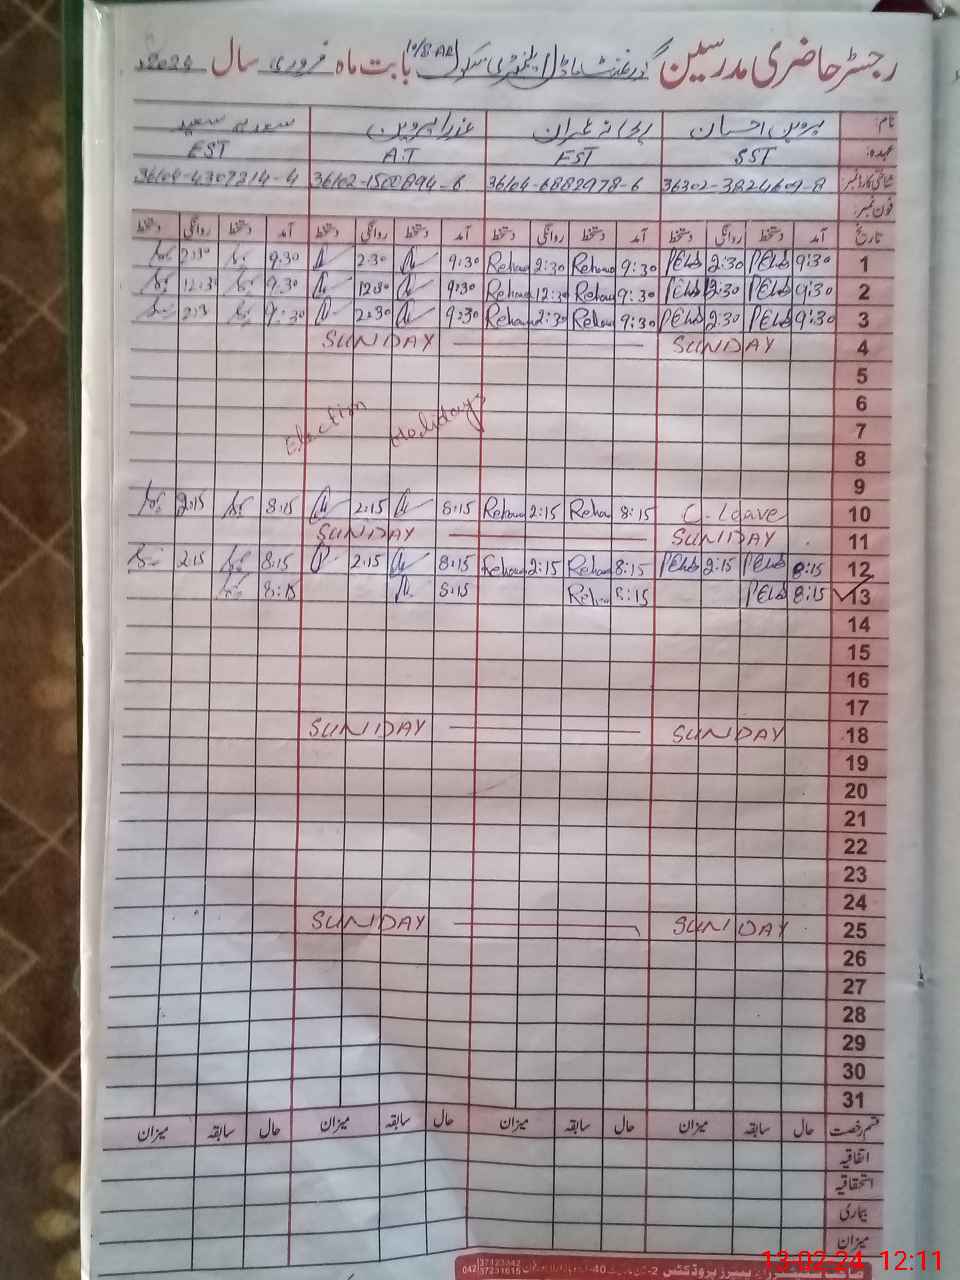 رجسٹر حاضری مدرسین گورنمنٹ ماڈل ایلیمنٹری سکول 10/8-AR بابت ماہ فروری سال 2024ء
نام: پروین احسان ریحانہ عمران عذرا پروین سعدیہ سعید
عہدہ: SST EST A.T EST
شناختی کارڈ نمبر: 36302-3824609-8 36104-6882978-6 36102-1500894-6 36104-4307214-4
فون نمبر:
تاریخ آمد دستخط روانگی دستخط آمد دستخط روانگی دستخط آمد دستخط روانگی دستخط آمد دستخط روانگی دستخط
1 9:30 2:30 9:30 2:30 9:30 2:30 9.30 2:30
2 9:30 12:30 9:30 12:30 9:30 12:30 9.30 12:3
3 9:30 2:30 9:30 2:30 9:30 2:30 9:30 2:3
4 SUNDAY SUNDAY
5
6
7 Election Holidays
8
9
10 C-leave 8:15 2:15 8:15 2:15 8:15 2:15
11 SUNDAY SUNDAY
12 8:15 2:15 8:15 2:15 8:15 2:15 8:15 2:15
13 8:15 8:15 8:15 8:15
14
15
16
17
18 SUNDAY SUNDAY
19
20
21
22
23
24
25 SUNDAY SUNDAY
26
27
28
29
30
31
قسم رخصت حال سابقہ میزان حال سابقہ میزان حال سابقہ میزان حال سابقہ میزان
اتفاقیہ
استحقاقیہ
بیماری
میزان
13-02-24 12:11